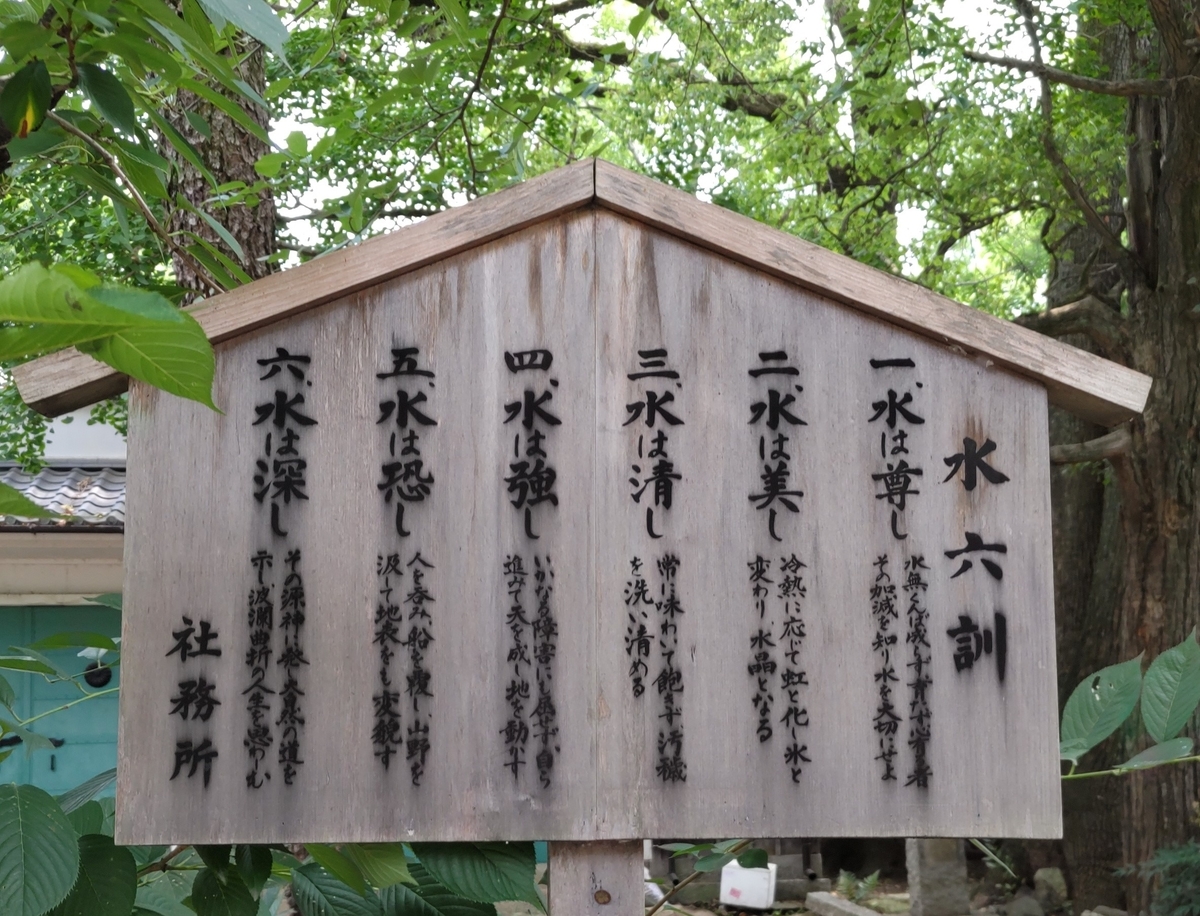 水六訓
一、水は尊し
水無くんば成らず育たず心ある者
その加減を知り水を大切にせよ
二、水は美し
冷熱に応じて虹と化し氷と
変わり、水晶となる
三、水は清し
常に味わいて飽きず、汚穢
を洗い清める
四、水は強し
いかなる障害にも屈せず、自ら
進みて天を成し地を動かす
五、水は恐し
人を呑み、船を覆し、山野を
汲して地表をも変貌す
六、水は深し
その源神に発し、大黒の道を
示し、波瀾曲折の人生を思わしむ
社務所